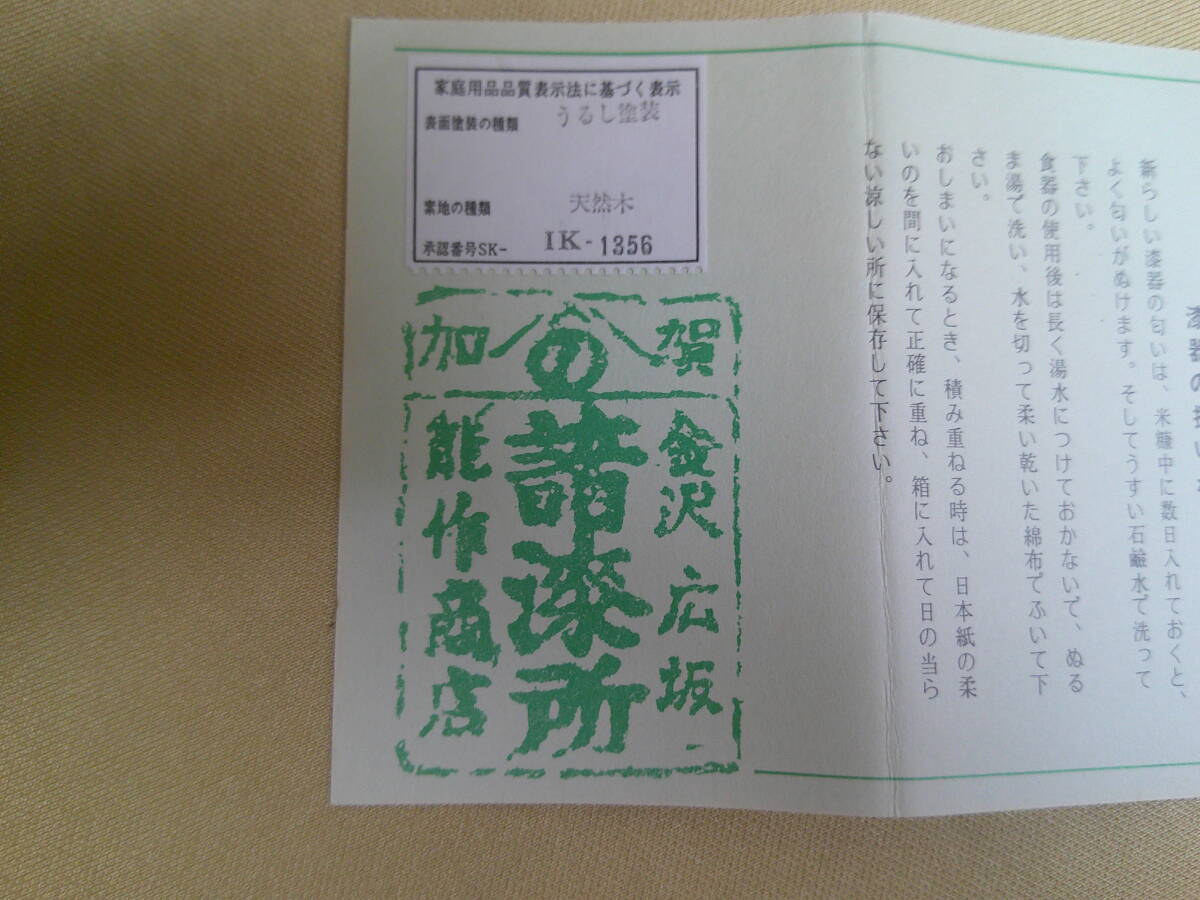 家庭用品品質表示法に基づく表示
表面塗装の種類 うるし塗装
素地の種類 天然木
承認番号SK- IK-1356
賀 の 加
金沢 広坂
諸漆所
能作商店
新らしい漆器の匂いは、米糠中に数日入れておくと、
よく匂いがぬけます。そしてうすい石鹸水で洗って
下さい。
食器の使用後は長く湯水につけておかないで、ぬる
ま湯で洗い、水を切って柔い乾いた綿布でふいて下
さい。
おしまいになるとき、積み重ねる時は、日本紙の柔
いのを間に入れて正確に重ね、箱に入れて日の当ら
ない涼しい所に保存して下さい。